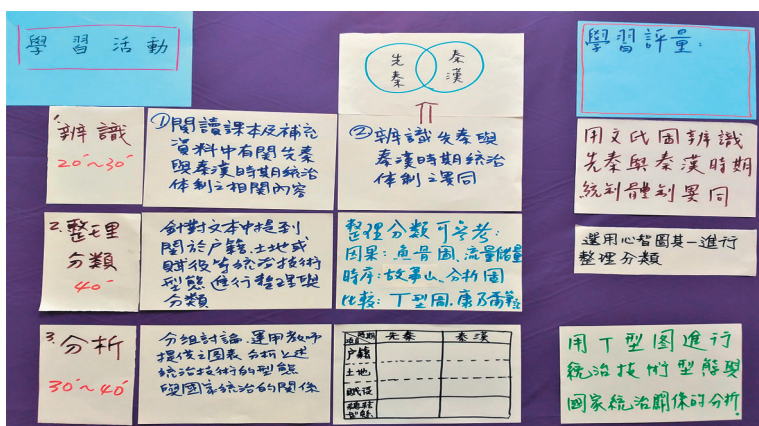 學習活動
先秦
秦漢
學習評量：
1.辨識
20'~30'
①閱讀課本及補充
資料中有關先秦
與秦漢時期統治
体制之相關內容
②辨識先秦與
秦漢時期統治
体制之異同
用文氏圖辨識
先秦與秦漢時期
統制體制異同
2.整理
分類
40'
針對文本中提到
關於戶籍、土地或
賦役等統治技術
型態進行整理與
分類
整理分類可參考：
因果：魚骨圖、流量儲量
時序：故事山、分析圖
比較：丁型圖、康乃爾筆記
選用心智圖其一進行
整理分類
3.分析
30'~40'
分組討論、運用教師
提供之圖表分析上述
統治技術的型態
與國家統治的關係
時期
項目
先秦
秦漢
戶籍
土地
賦役
用丁型圖進行
統治技術型態與
國家統治關係的分析！